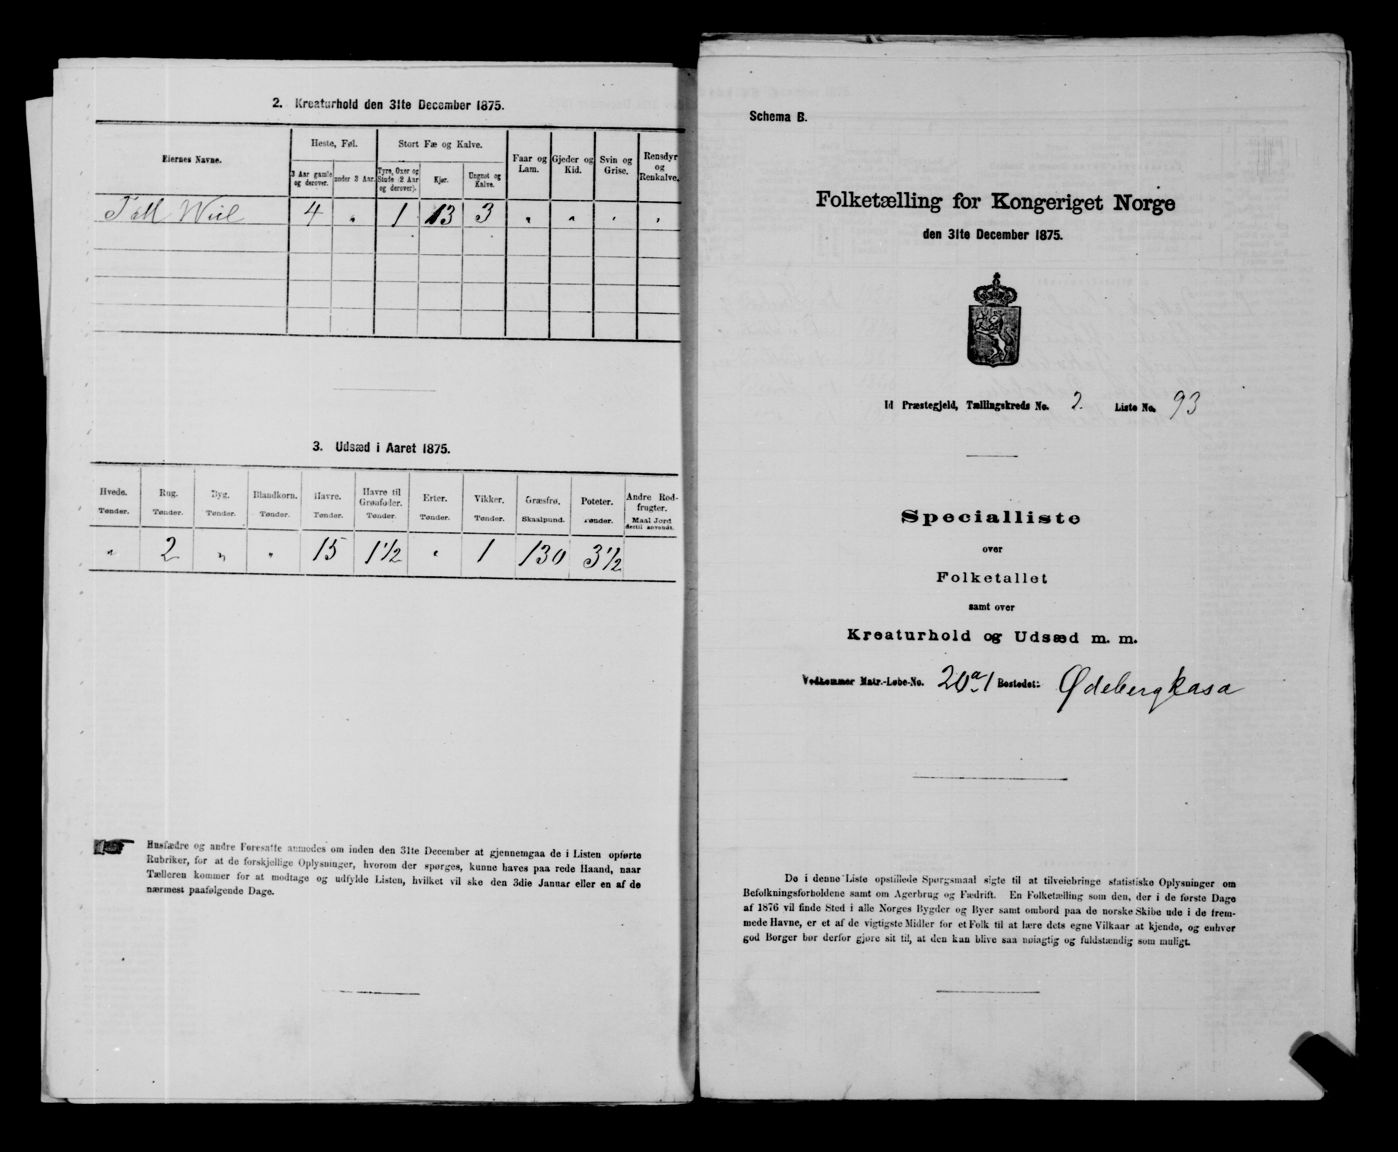 2. Kreaturhold den 31te December 1875.
Eiernes Navne.
Heste, Føl.
Stort Fæ og Kalve.
Faar og Lam.
Gjeder og Kid.
Svin og Grise.
Rensdyr og Renkalve.
3 Aar gamle og derover.
under 3 Aar.
Tyre, Oxer og Stude (2 Aar og derover).
Kjør.
Ungnøt og Kalve.
4 " 1 13 3 " " " "
3. Udsæd i Aaret 1875.
Hvede. Rug. Byg. Blandkorn. Havre. Havre til Grønfoder. Erter. Vikker. Græsfrø. Poteter. Andre Rodfrugter.
Tønder. Tønder. Tønder. Tønder. Tønder. Tønder. Tønder. Tønder. Skaalpund. Tønder. Maal Jord dertil anvendt.
" 2 " " 15 1 1/2 " 1 130 3 1/2
Husfædre og andre Foresatte anmodes om inden den 31te December at gjennemgaa de i Listen opførte
Rubriker, for at de forskjellige Oplysninger, hvorom der spørges, kunne haves paa rede Haand, naar
Tælleren kommer for at modtage og udfylde Listen, hvilket vil ske den 3die Januar eller en af de
nærmest paafølgende Dage.
Schema B.
Folketælling for Kongeriget Norge
den 31te December 1875.
Id Præstegjeld, Tællingskreds No. 2. Liste No. 93
Specialliste
over
Folketallet
samt over
Kreaturhold og Udsæd m. m.
Vedkommer Matr.-Løbe-No. 20a1 Bostedet: Ødebergkasa
De i denne Liste opstillede Spørgsmaal sigte til at tilveiebringe statistiske Oplysninger om
Befolkningsforholdene samt om Agerbrug og Fædrift. En Folketælling som den, der i de første Dage
af 1876 vil finde Sted i alle Norges Bygder og Byer samt ombord paa de norske Skibe ude i de frem-
mede Havne, er et af de vigtigste Midler for et Folk til at lære dets egne Vilkaar at kjende, og enhver
god Borger bør derfor gjøre sit til, at den kan blive saa nøiagtig og fuldstændig som muligt.